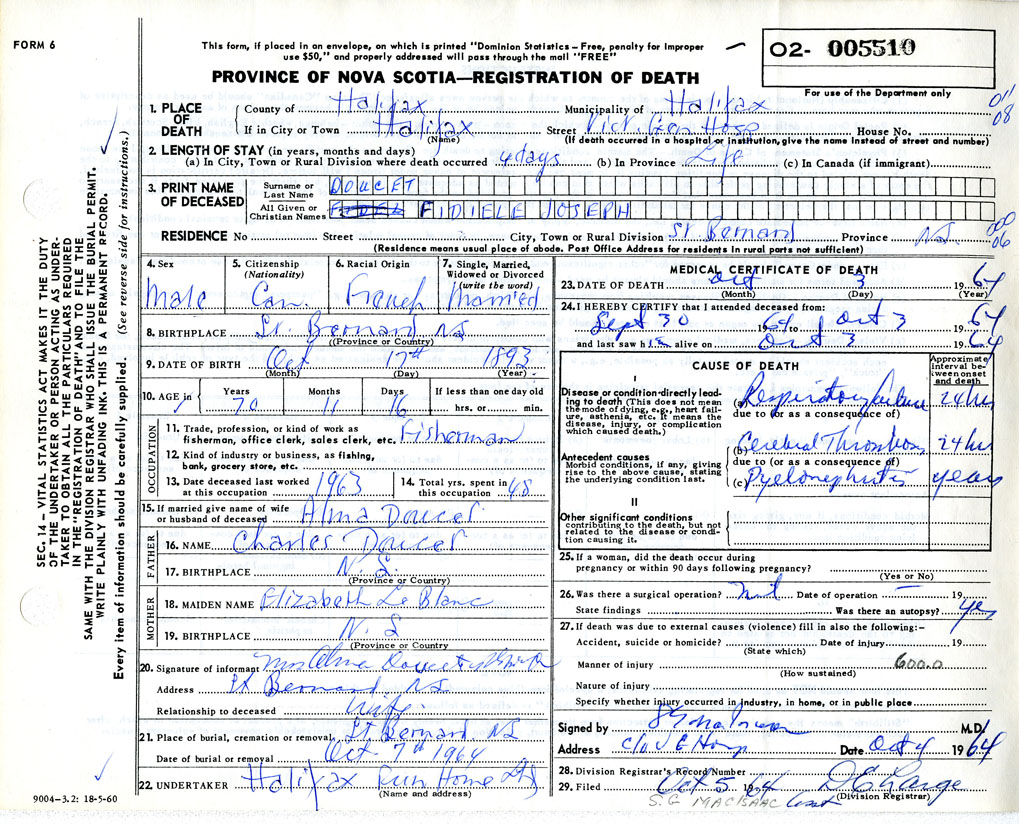 FORM 6
This form, if placed in an envelope, on which is printed "Dominion Statistics – Free, penalty for improper
use $50," and properly addressed will pass through the mail "FREE"
02- 005510
For use of the Department only
PROVINCE OF NOVA SCOTIA—REGISTRATION OF DEATH
011
08
1. PLACE OF DEATH
County of Halifax Municipality of Halifax
If in City or Town Halifax Street Vict. Gen Hosp House No.
(Name) (If death occurred in a hospital or institution, give the name instead of street and number)
2. LENGTH OF STAY (in years, months and days)
(a) In City, Town or Rural Division where death occurred 4 days (b) In Province Life (c) In Canada (if immigrant)
3. PRINT NAME OF DECEASED
Surname or Last Name DOUCET
All Given or Christian Names FIDIELE JOSEPH
000
06
RESIDENCE No Street City, Town or Rural Division St Bernard Province N.S.
(Residence means usual place of abode. Post Office Address for residents in rural parts not sufficient)
4. Sex Male
5. Citizenship (Nationality) Can.
6. Racial Origin French
7. Single, Married, Widowed or Divorced (write the word) Married
8. BIRTHPLACE St. Bernard NS
(Province or Country)
9. DATE OF BIRTH Oct 17th 1893
(Month) (Day) (Year)
10. AGE in Years Months Days If less than one day old
70 11 16 hrs. or min.
OCCUPATION
11. Trade, profession, or kind of work as
fisherman, office clerk, sales clerk, etc. Fisherman
12. Kind of industry or business, as fishing,
bank, grocery store, etc.
13. Date deceased last worked at this occupation 1963
14. Total yrs. spent in this occupation 48
15. If married give name of wife
or husband of deceased Alma Doucet
FATHER
16. NAME Charles Doucet
17. BIRTHPLACE N.S.
(Province or Country)
MOTHER
18. MAIDEN NAME Elizabeth Le Blanc
19. BIRTHPLACE N.S
(Province or Country
20. Signature of informant Mrs Alma Doucet
Address St Bernard NS
Relationship to deceased Wife
21. Place of burial, cremation or removal St Bernard NS
Date of burial or removal Oct 7th 1964
22. UNDERTAKER Halifax Fun Home Ltd
(Name and address)
9004-3.2: 18-5-60
MEDICAL CERTIFICATE OF DEATH
23. DATE OF DEATH Oct 3 1964
(Month) (Day) (Year)
24. I HEREBY CERTIFY that I attended deceased from:
Sept 30 1964 to Oct 3 1964
and last saw him alive on Oct 3 1964
CAUSE OF DEATH
Approximate interval between onset and death
I
Disease or condition directly leading to death (This does not mean the mode of dying, e.g., heart failure, asthenia, etc. It means the disease, injury, or complication which caused death.)
(a) Respiratory failure 24 hrs
due to (or as a consequence of)
Antecedent causes
Morbid conditions, if any, giving rise to the above cause, stating the underlying condition last.
(b) Cerebral Thrombosis 24 hrs
due to (or as a consequence of)
(c) Pyelonephritis years
II
Other significant conditions
contributing to the death, but not related to the disease or condition causing it.
25. If a woman, did the death occur during
pregnancy or within 90 days following pregnancy?
(Yes or No)
26. Was there a surgical operation? Date of operation – 19
State findings Was there an autopsy? Yes
27. If death was due to external causes (violence) fill in also the following:-
Accident, suicide or homicide? Date of injury 19
(State which)
Manner of injury 600.0
(How sustained)
Nature of injury
Specify whether injury occurred in industry, in home, or in public place
Signed by M.D.
Address c/o V G Hosp Date Oct 4 1964
28. Division Registrar's Record Number
29. Filed Oct 5 1964
(Division Registrar)
S.G MACISAAC
SEC. 14 – VITAL STATISTICS ACT MAKES IT THE DUTY
OF THE UNDERTAKER OR PERSON ACTING AS UNDER-
TAKER TO OBTAIN ALL THE PARTICULARS REQUIRED
IN THE "REGISTRATION OF DEATH" AND TO FILE THE
SAME WITH THE DIVISION REGISTRAR WHO SHALL ISSUE THE BURIAL PERMIT.
WRITE PLAINLY WITH UNFADING INK. THIS IS A PERMANENT RECORD.
Every item of information should be carefully supplied. (See reverse side for instructions.)